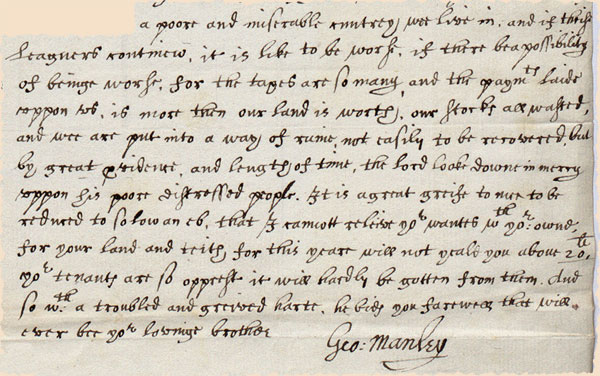 a poore and miserable cuntrey wee live in, and if theise
Leaguers continew, it is like to be worse, if there be a possibility
of beinge worse, for the taxes are so many, and the paymts laide
uppon us, is more then our land is worth, our stocks all wasted,
and wee are put into a way of ruine, not easily to be recovered, but
by great providence, and length of time, the Lord looke downe in mercy
uppon his poore distressed people. It is a great greife to mee to be
reduced to so low an eb, that I cannott releive yor wantes wth yor: owne
for your land and teith, for this yeare will not yeald you above 20li
yor tenants are so opprest it will hardly be gotten from them. And
so wth a troubled and greeved harte, he bids you farewell that will
ever bee yor lovinge brother
Geo: Manley